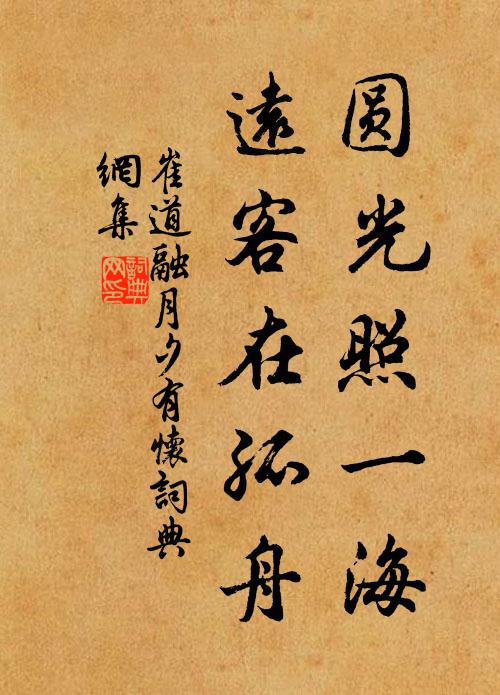 圆光照一海
遠客在孤舟
崔道融月夕有懷詞典
網集
詞典
网印